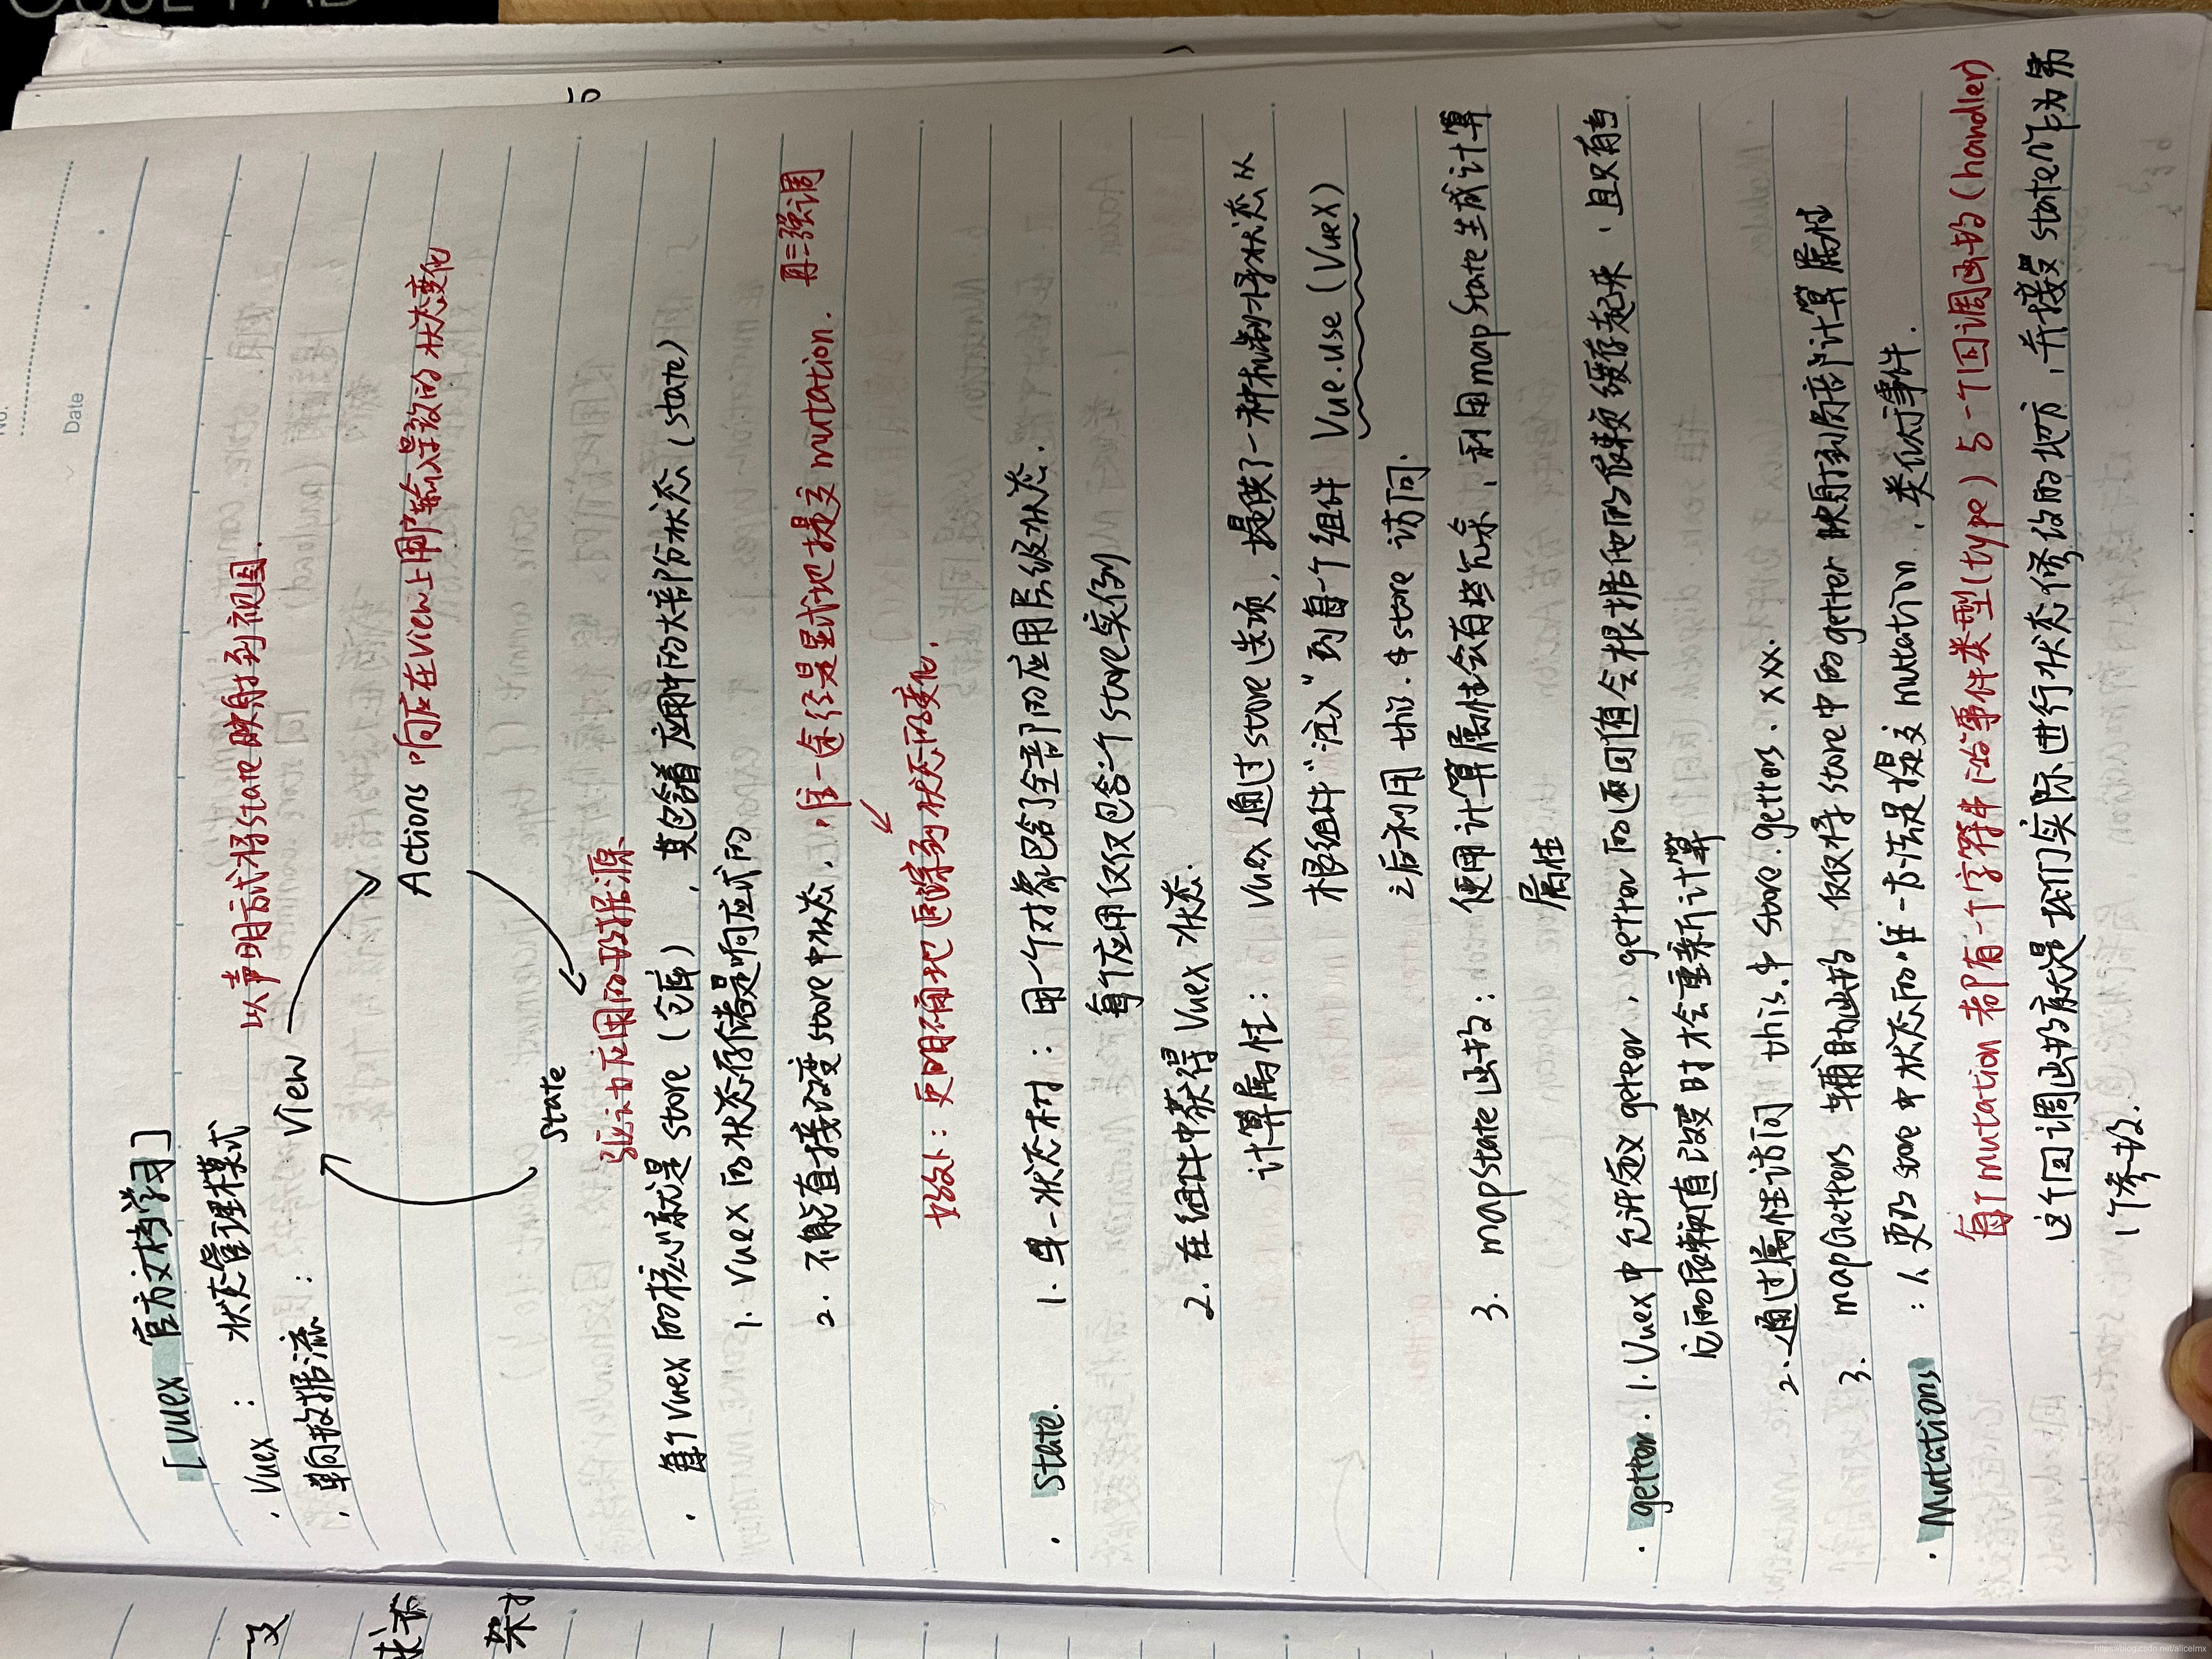 No.
Date
[Vuex 官方文档学习]
· Vuex : 状态管理模式
· 单向数据流 : View 以声明方式将state映射到视图.
Actions 响应在View上用户输入导致的状态变化
State
驱动应用的数据源
· 每个Vuex的核心就是store(仓库), 其包含着应用中的大部份状态(state)
1. Vuex的状态存储是响应式的
2. 不能直接改变store中状态. 唯一途径是显式地提交mutation. 再三强调
好处: 更明确地追踪到状态的变化.
· State. 1. 单一状态树: 用一个对象包含了全部的应用层级状态.
每个应用仅仅包含一个store实例
2. 在组件中获得Vuex状态.
计算属性: Vuex通过store选项, 提供了一种机制将状态从
根组件"注入"到每一个组件 Vue.use(Vuex)
之后利用 this.$store 访问.
3. mapState函数: 使用计算属性会有些冗余, 利用mapState生成计算
属性
· getter. 1. Vuex中允许定义getter, getter的返回值会根据他的依赖项缓存起来, 且只有当
它的依赖值改变时才会重新计算
2. 通过属性访问 this.$store.getters.xxx.
3. mapGetters 辅助函数 仅仅将store中的getter映射到局部计算属性
· Mutations : 1. 更改store中状态的唯一方法是提交mutation, 类似于事件.
每个mutation都有一个字符串的事件类型(type)与一个回调函数(handler)
这个回调函数就是我们实际进行状态修改的地方, 并接受state作为第
1个参数.
https://blog.csdn.net/alicelmx